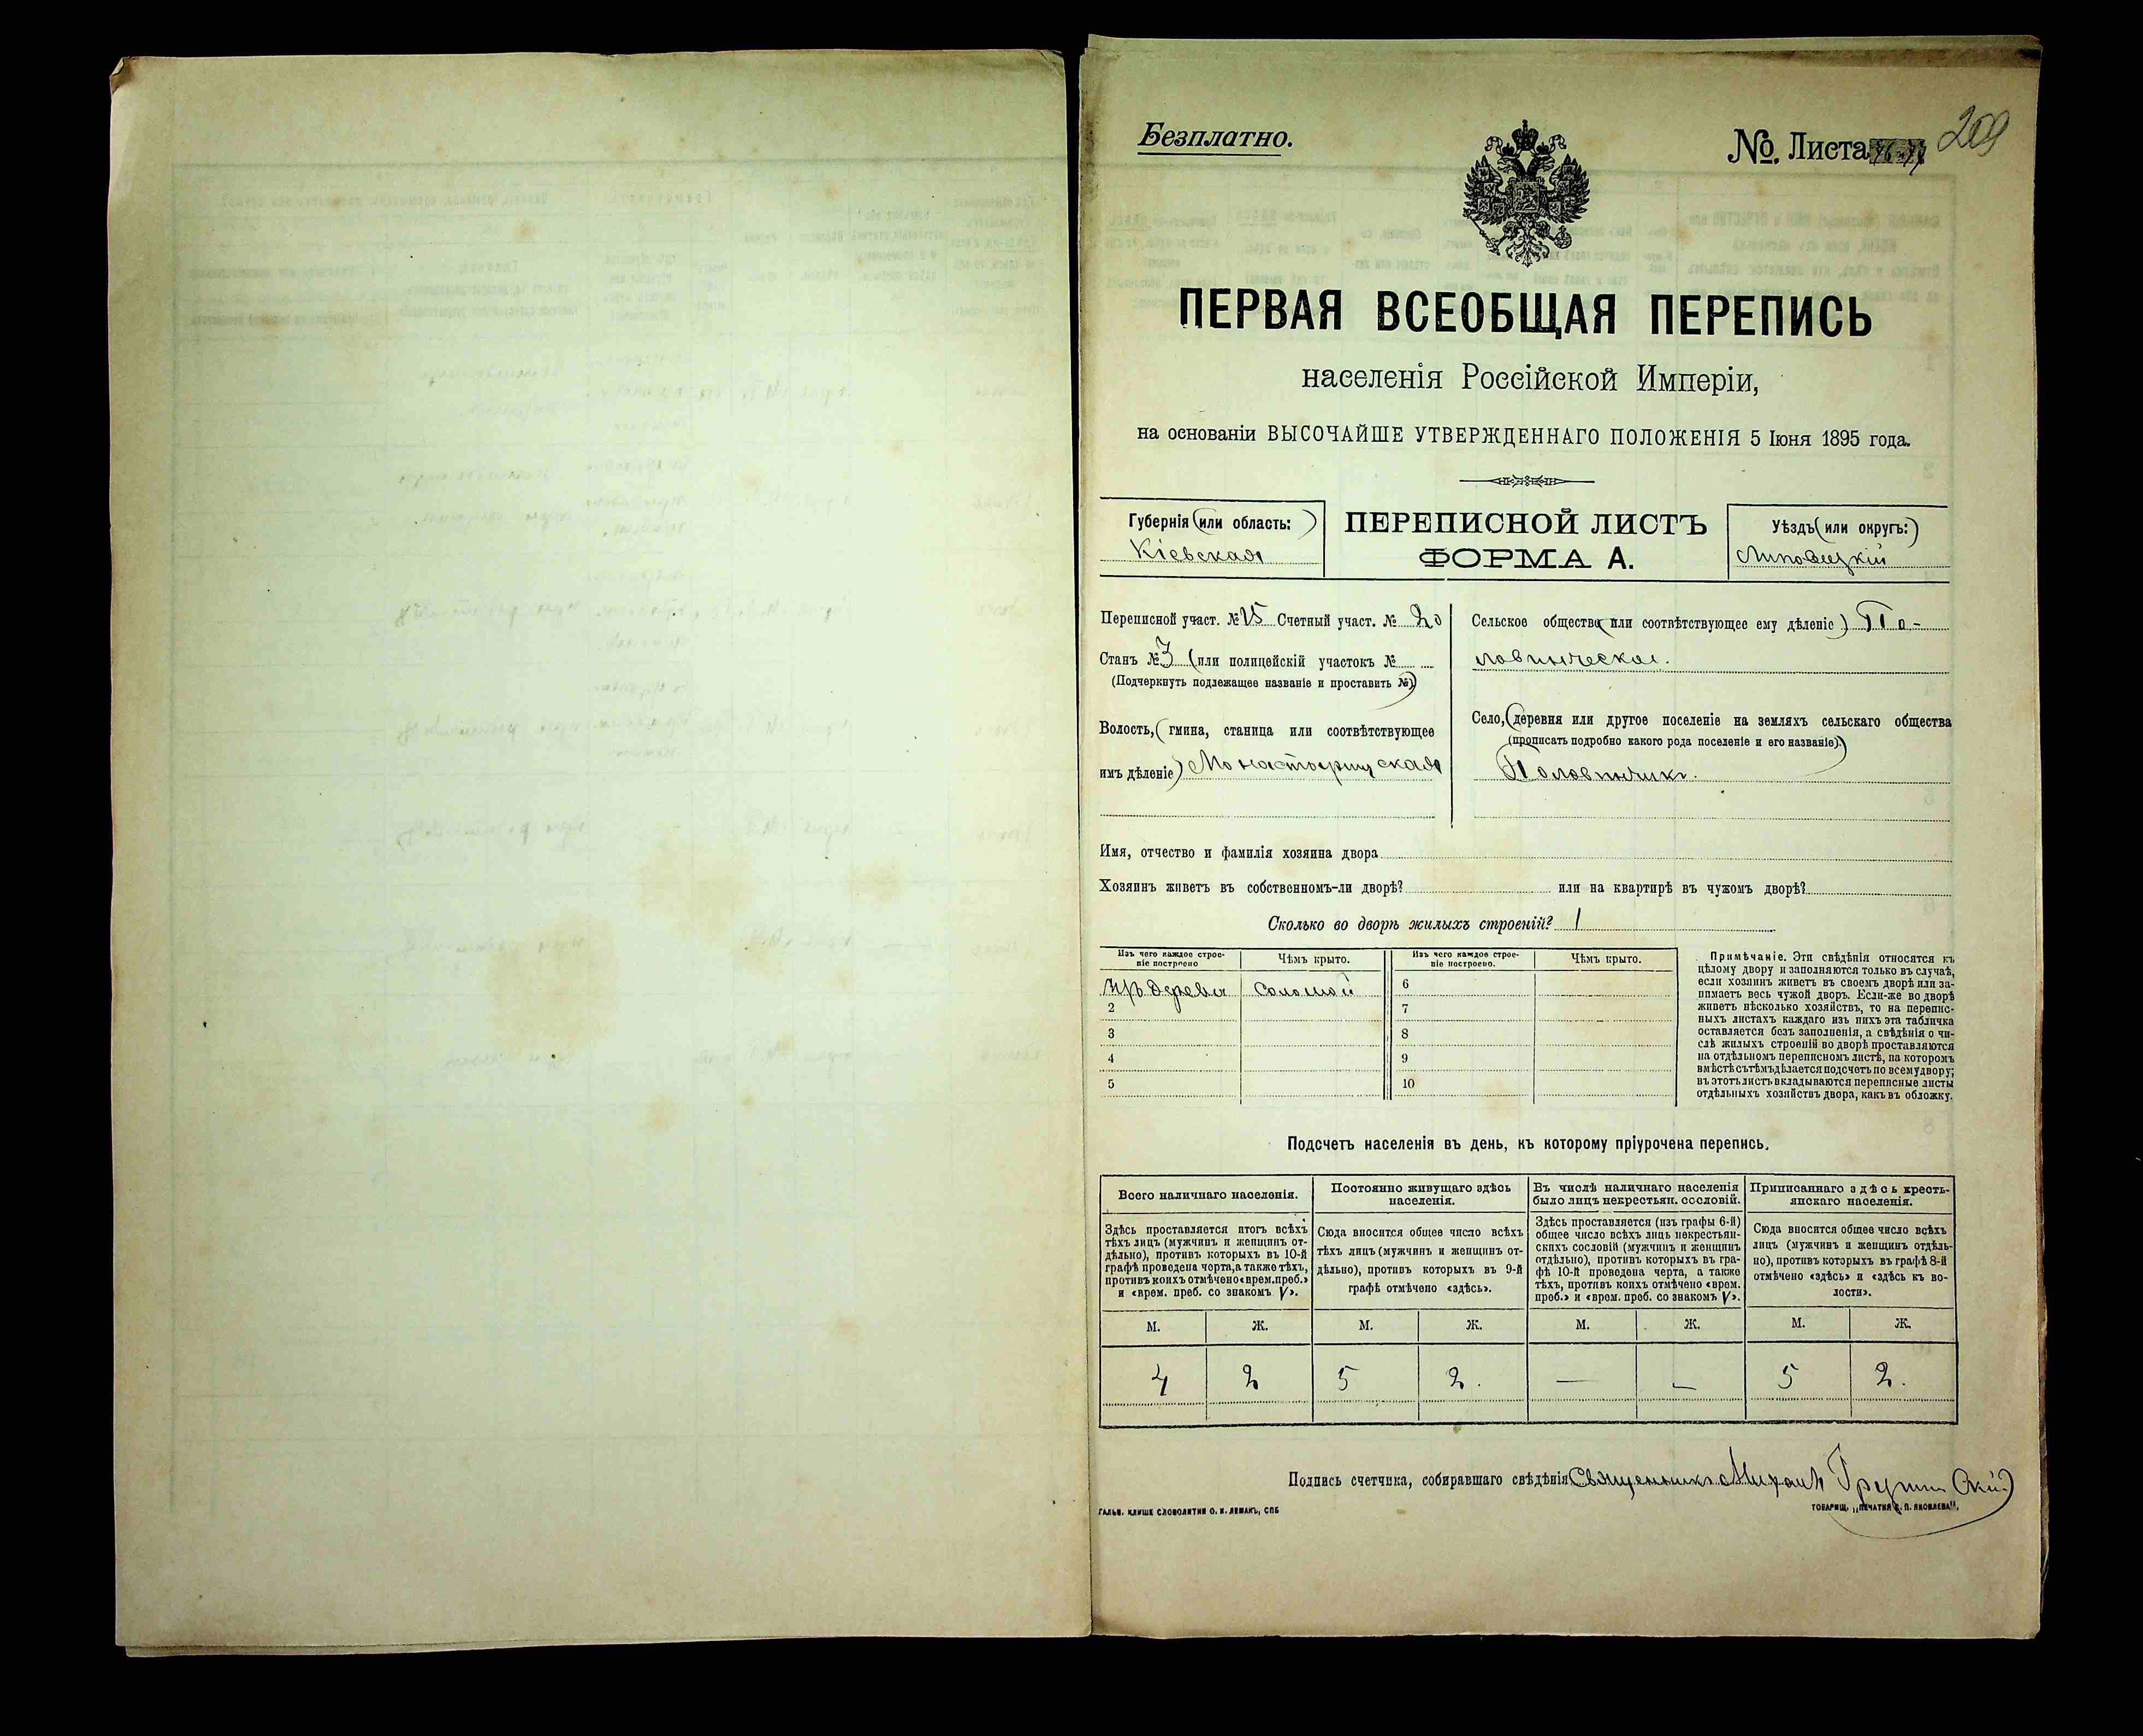 Безплатно.
№. Листа 209
ПЕРВАЯ ВСЕОБЩАЯ ПЕРЕПИСЬ
населенія Россійской Имперіи,
на основаніи ВЫСОЧАЙШЕ УТВЕРЖДЕННАГО ПОЛОЖЕНІЯ 5 Іюня 1895 года.
Губернія (или область:)
Кіевская
ПЕРЕПИСНОЙ ЛИСТЪ
ФОРМА А.
Уѣздъ (или округъ:)
Липовецкій
Переписной участ. № 15 Счетный участ. № 20
Станъ № 3 (или полицейскій участокъ №
(Подчеркнуть подлежащее названіе и проставить №)
Волость, (гмина, станица или соотвѣтствующее
имъ дѣленіе) Монастырищская
Сельское общество (или соотвѣтствующее ему дѣленіе) По-
ловинческое.
Село, (деревня или другое поселеніе на земляхъ сельскаго общества
(прописать подробно какого рода поселеніе и его названіе).)
Половинчикъ.
Имя, отчество и фамилія хозяина двора
Хозяинъ живетъ въ собственномъ-ли дворѣ? или на квартирѣ въ чужомъ дворѣ?
Сколько во дворѣ жилыхъ строеній? 1
Изъ чего каждое строе-
ніе построено
Чѣмъ крыто.
Изъ чего каждое строе-
ніе построено.
Чѣмъ крыто.
Изъ дерева соломой 6
2 7
3 8
4 9
5 10
Примѣчаніе. Эти свѣдѣнія относятся къ
цѣлому двору и заполняются только въ случаѣ,
если хозяинъ живетъ въ своемъ дворѣ или за-
нимаетъ весь чужой дворъ. Если-же во дворѣ
живетъ нѣсколько хозяйствъ, то на перепис-
ныхъ листахъ каждаго изъ нихъ эта табличка
оставляется безъ заполненія, а свѣдѣнія о чи-
слѣ жилыхъ строеній во дворѣ проставляются
на отдѣльномъ переписномъ листѣ, на которомъ
вмѣстѣ съ тѣмъ дѣлается подсчетъ по всему двору;
въ этотъ листъ вкладываются переписные листы
отдѣльныхъ хозяйствъ двора, какъ въ обложку.
Подсчетъ населенія въ день, къ которому пріурочена перепись.
Всего наличнаго населенія.
Здѣсь проставляется итогъ всѣхъ
тѣхъ лицъ (мужчинъ и женщинъ от-
дѣльно), противъ которыхъ въ 10-й
графѣ проведена черта, а также тѣхъ,
противъ коихъ отмѣчено «врем. преб.»
и «врем. преб. со знакомъ V».
Постоянно живущаго здѣсь
населенія.
Сюда вносится общее число всѣхъ
тѣхъ лицъ (мужчинъ и женщинъ от-
дѣльно), противъ которыхъ въ 9-й
графѣ отмѣчено «здѣсь».
Въ числѣ наличнаго населенія
было лицъ некрестьян. сословій.
Здѣсь проставляется (изъ графы 6-й)
общее число всѣхъ лицъ некрестьян-
скихъ сословій (мужчинъ и женщинъ
отдѣльно), противъ которыхъ въ гра-
фѣ 10-й проведена черта, а также
тѣхъ, противъ коихъ отмѣчено «врем.
преб.» и «врем. преб. со знакомъ V».
Приписаннаго здѣсь кресть-
янскаго населенія.
Сюда вносится общее число всѣхъ
лицъ (мужчинъ и женщинъ отдѣль-
но), противъ которыхъ въ графѣ 8-й
отмѣчено «здѣсь» и «здѣсь къ во-
лости».
М. Ж. М. Ж. М. Ж. М. Ж.
4 2 5 2. — — 5 2.
Подпись счетчика, собиравшаго свѣдѣнія Священникъ Михаилъ
ГАЛЬВ. КЛИШЕ СЛОВОЛИТНИ О. И. ЛЕМАНЪ, СПБ
ТОВАРИЩ. „ПЕЧАТНЯ С. П. ЯКОВЛЕВА".